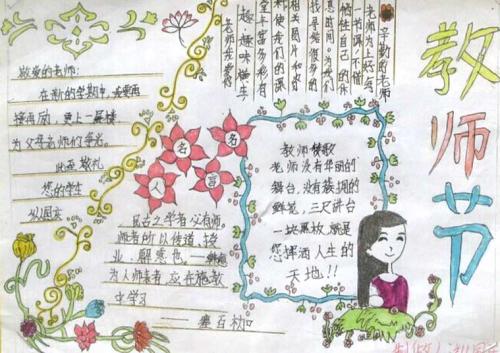 教师节
辛勤的老师
老师为上好每
一节课,不惜
牺牲自己的休
息时间。为我们
找寻给很多的
相关图片和资
料使我们的课
堂丰富多彩有
趣,趣味横生
老师我爱您
敬爱的老师:
在新的学期中,我要再
接再励,更上一层楼
为父母老师们争光。
此致敬礼
您的学生
名人名言
教师颂歌
老师没有华丽的
舞台,没有簇拥的
鲜花,三尺讲台
一块黑板就是
您挥洒人生的
天地!!
凡古之学者必有师。
师者所以传道,授
业,解惑也。——韩愈
为人师表者应在施教
中学习
——塞百加